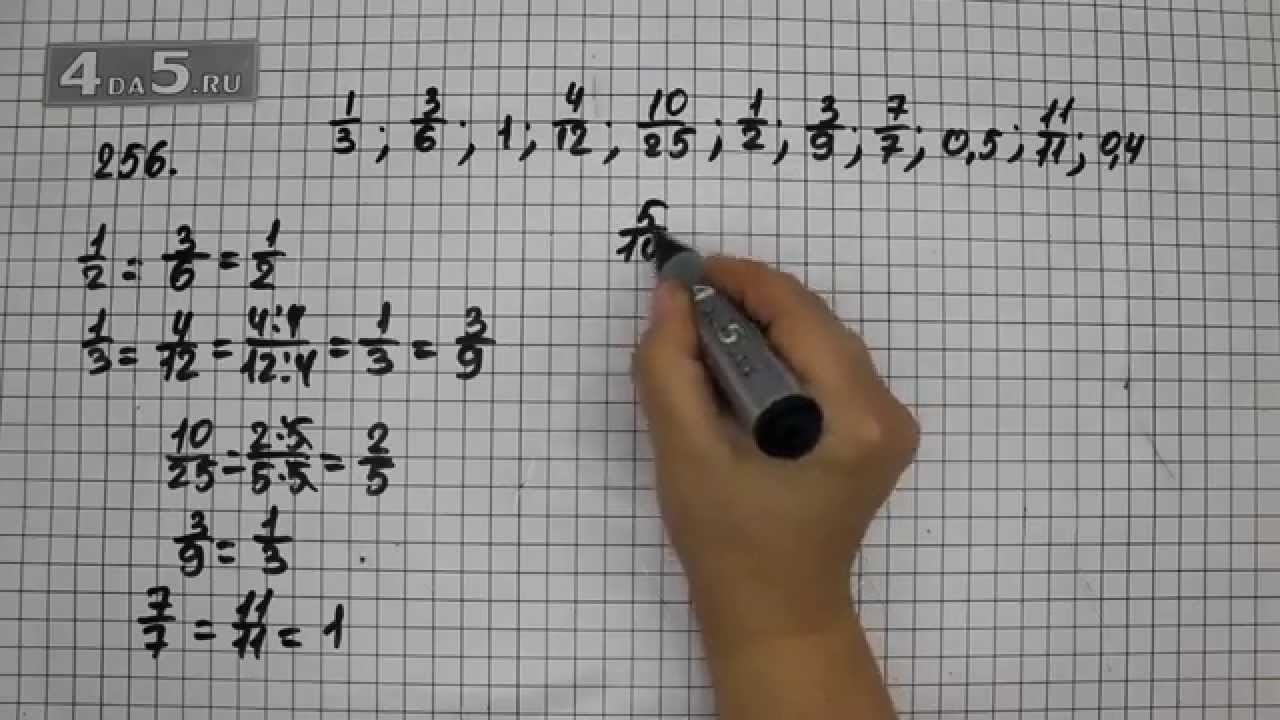 4DA5.RU
1/3 ; 3/6 ; 1 ; 4/12 ; 10/25 ; 1/2 ; 3/9 ; 7/7 ; 0,5 ; 11/11 ; 0,4
256.
5/10
1/2 = 3/6 = 1/2
1/3 = 4/12 = 4:4/12:4 = 1/3 = 3/9
10/25 = 2·5/5·5 = 2/5
3/9 = 1/3
7/7 = 11/11 = 1